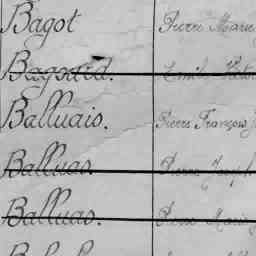 Bagot Pierre Marie
Bagouard. Emile Victor
Balluais. Pierre François J
Balluas. Pierre Joseph
Balluas. Pierre Marie